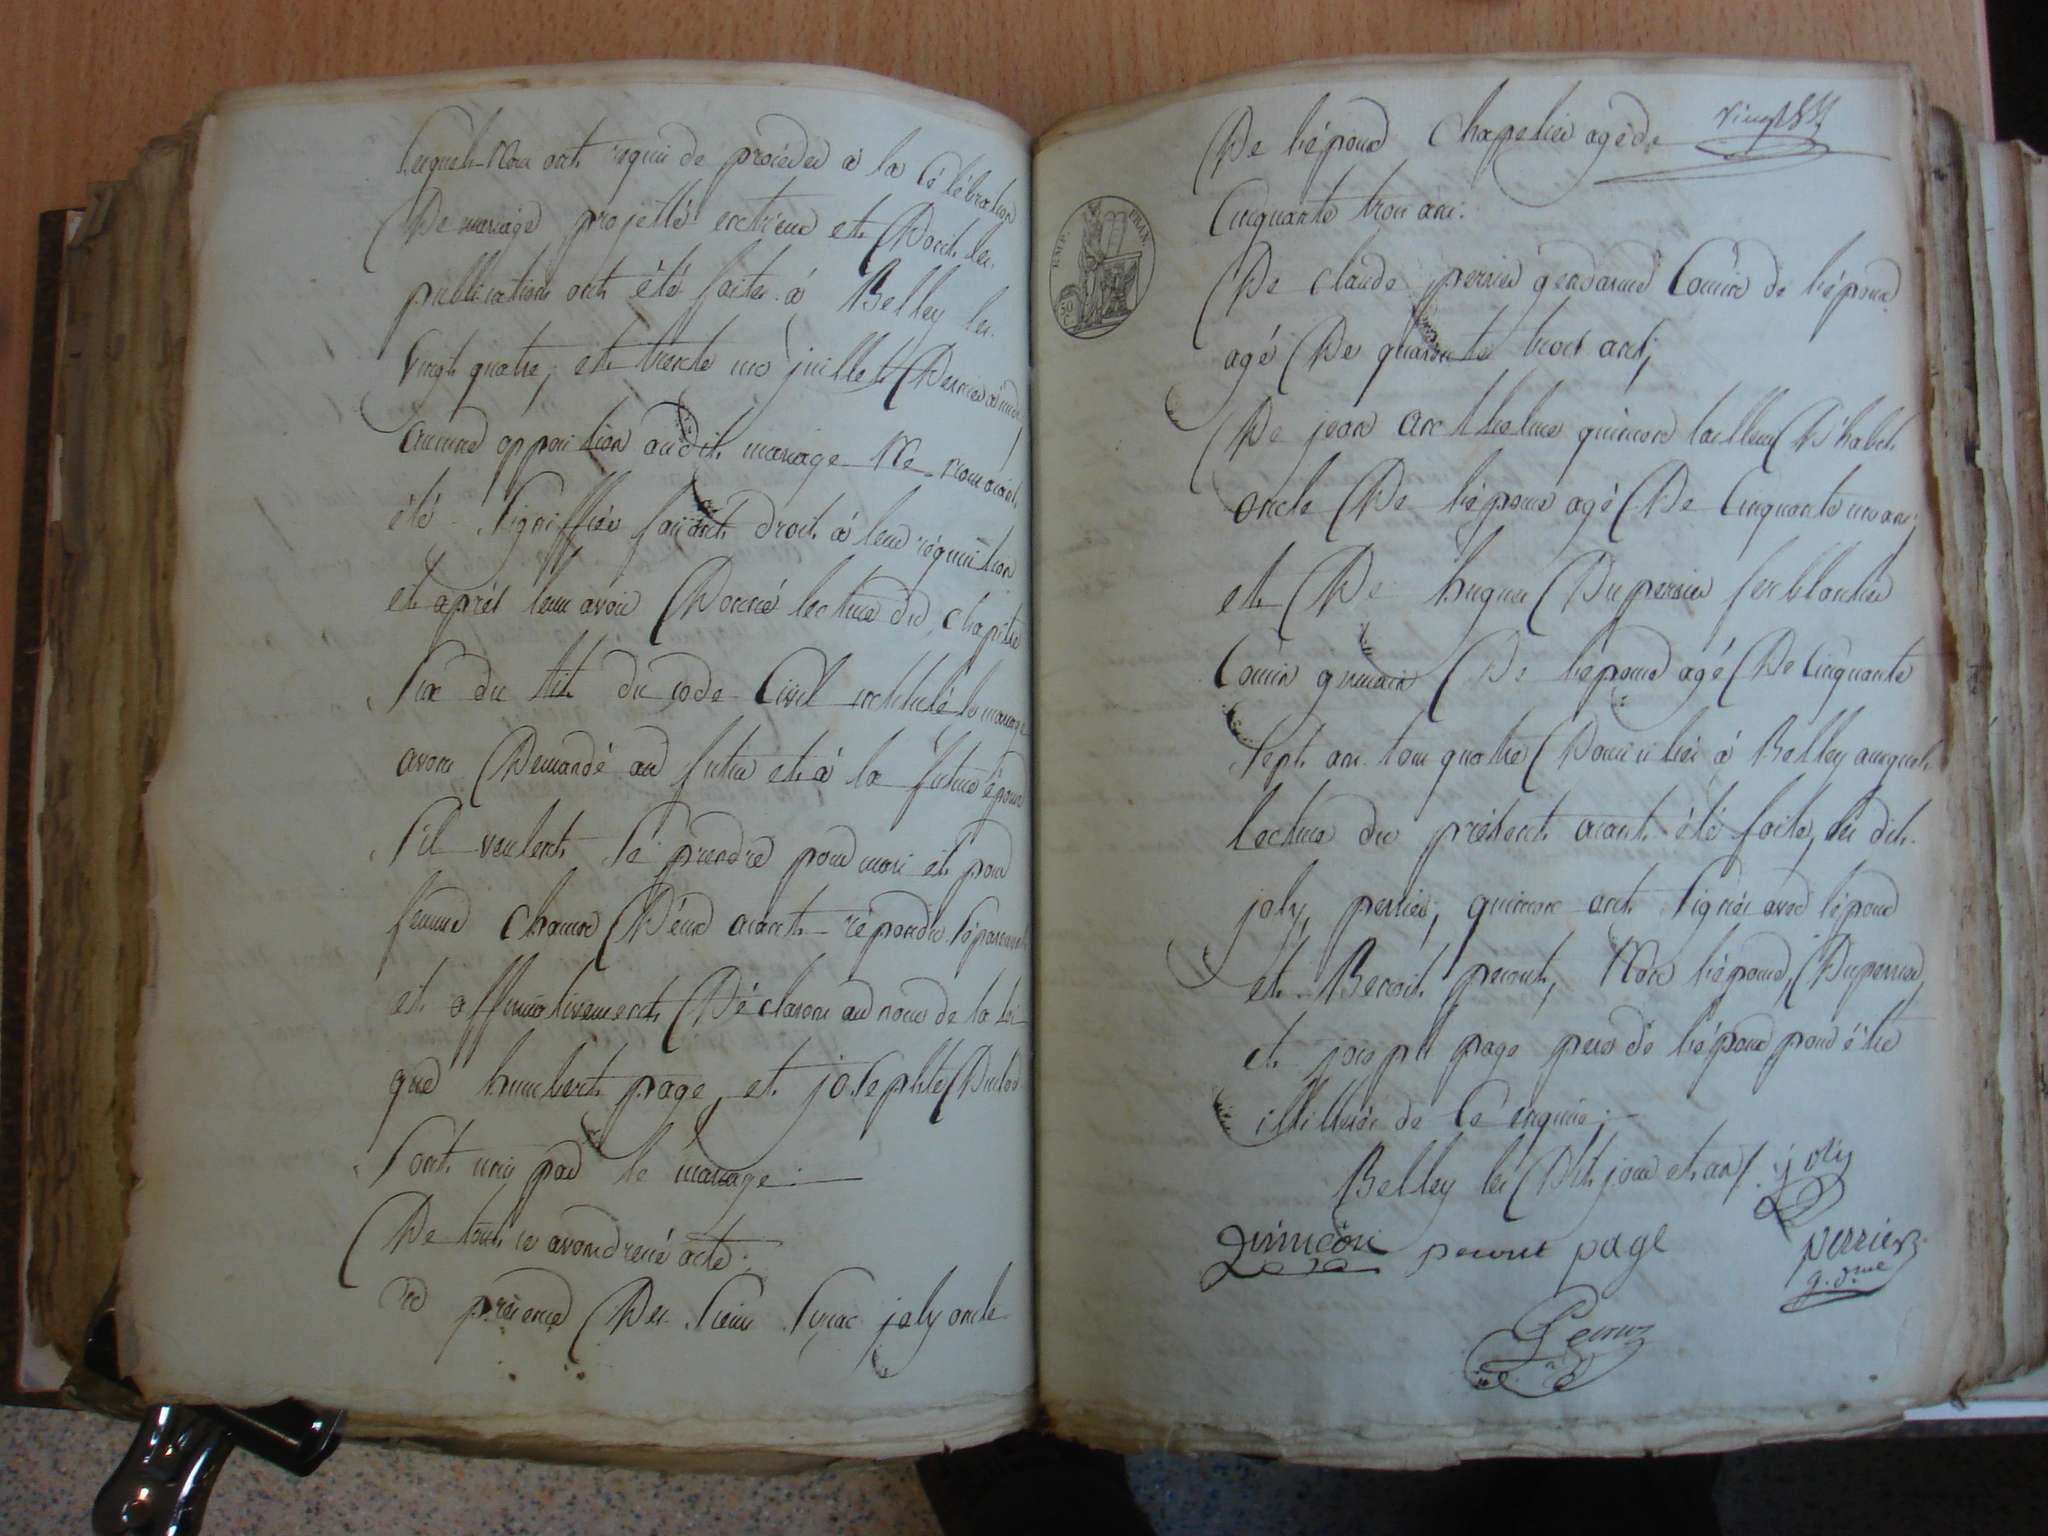 Lesquels Nous ont requis de procéder à la Célébration
De mariage projetté entr'eux et Dont les
publications ont été faites à Belley les
vingt quatre, et trente un juillet Dernier à midi
aucune opposition au dit mariage Ne nous aiant
été Signiffiée faisant droit à leur réquisition
et aprés leur avoir Donné lecture du chapitre
Six du tit. du code Civil intitulé du mariage
avons Demandé au futur et à la future épouse
S'il veulent Sé prendre pour mari et pour
femme chaqun D'eux aiant répondu Séparement
et affirmativement Déclarons au nom de la Loi
que humbert page, et josephte
Sont unis par le mariage.
De tout ce avons dressé acte.
En présence Des Sieurs joly oncle
De l'épouse Chapelier agé de
Cinquante trois ans.
EMP. FRAN.
De claude perrier gendarme Cousin de l'épouse
agé De quarante trois ans;
De jean anthelme quinson tailleur D'habits
oncle De l'épouse agé De Cinquante un ans;
et De hugues Duperrier ferblantier
Cousin germain De l'épouse agé De Cinquante
Sept ans tous quatre Domiciliés à Belley auxquels
lecture du présent aiant été faite, les dits
joly, perrier, quinson ont Signés avec l'époux
et Benoit peront, Non l'épouse, Duperrier,
et joseph page pere de l'époux pour être
illitterés de Ce enquis;
Belley les Dit jour et an /. joly
Quinson peront page perrier
g.dme